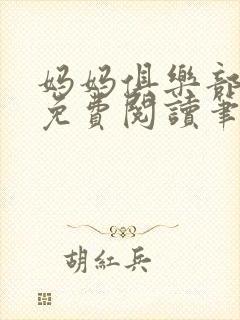 妈妈俱樂部
免費閱讀筆
胡紅兵